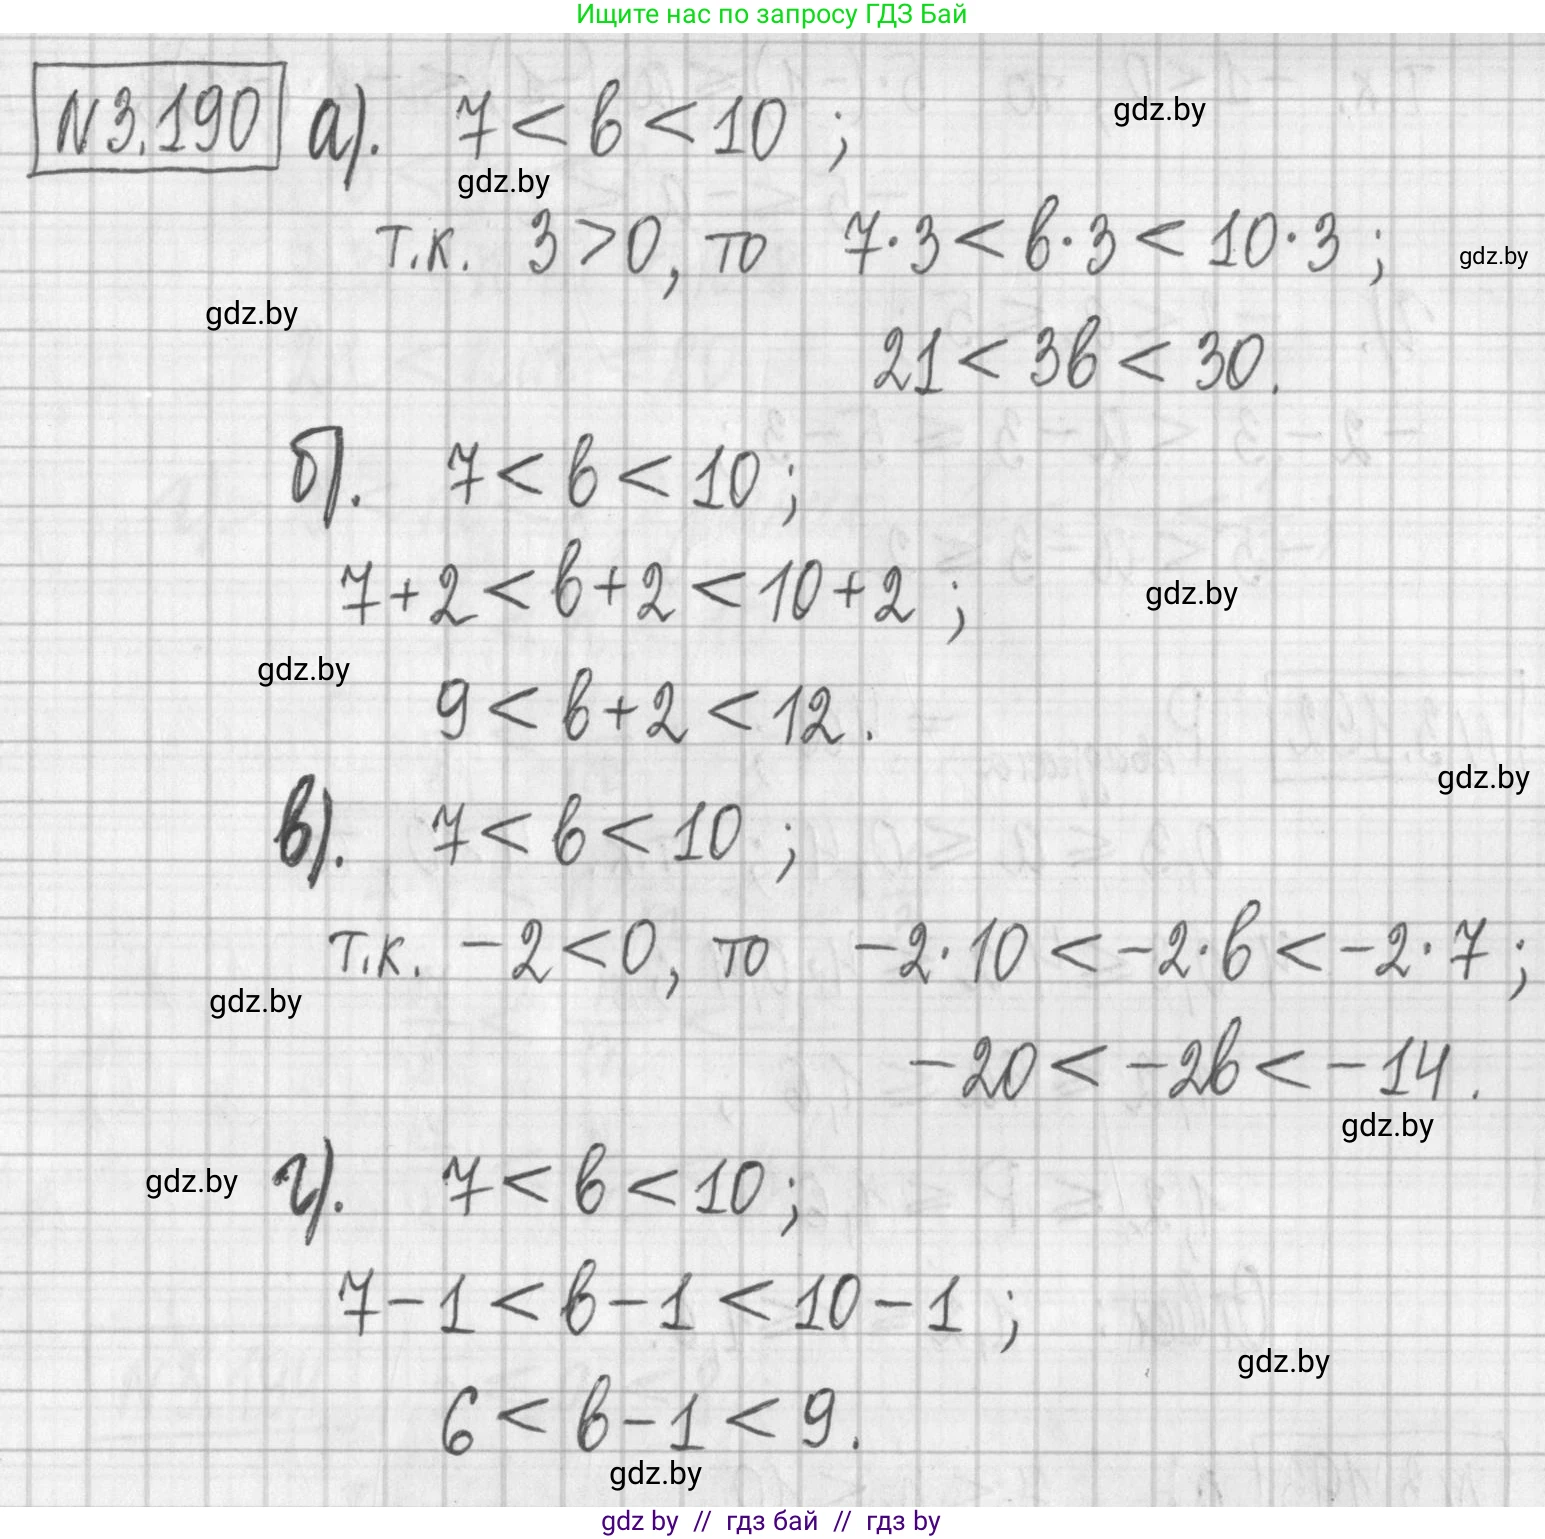 Ищите нас по запросу ГДЗ Бай
N3.190 а). 7 < в < 10 ;
gdz.by
gdz.by
т.к. 3 > 0, то 7·3 < в·3 < 10·3 ;
gdz.by
gdz.by
21 < 3в < 30.
б). 7 < в < 10 ;
7+2 < в+2 < 10+2 ;
gdz.by
gdz.by
9 < в+2 < 12.
gdz.by
в). 7 < в < 10 ;
т.к. -2 < 0, то -2·10 < -2·в < -2·7 ;
gdz.by
-20 < -2в < -14.
gdz.by
gdz.by
г). 7 < в < 10 ;
7-1 < в-1 < 10-1 ;
gdz.by
6 < в-1 < 9.
gdz.by
gdz by // гдз бай // гдз by